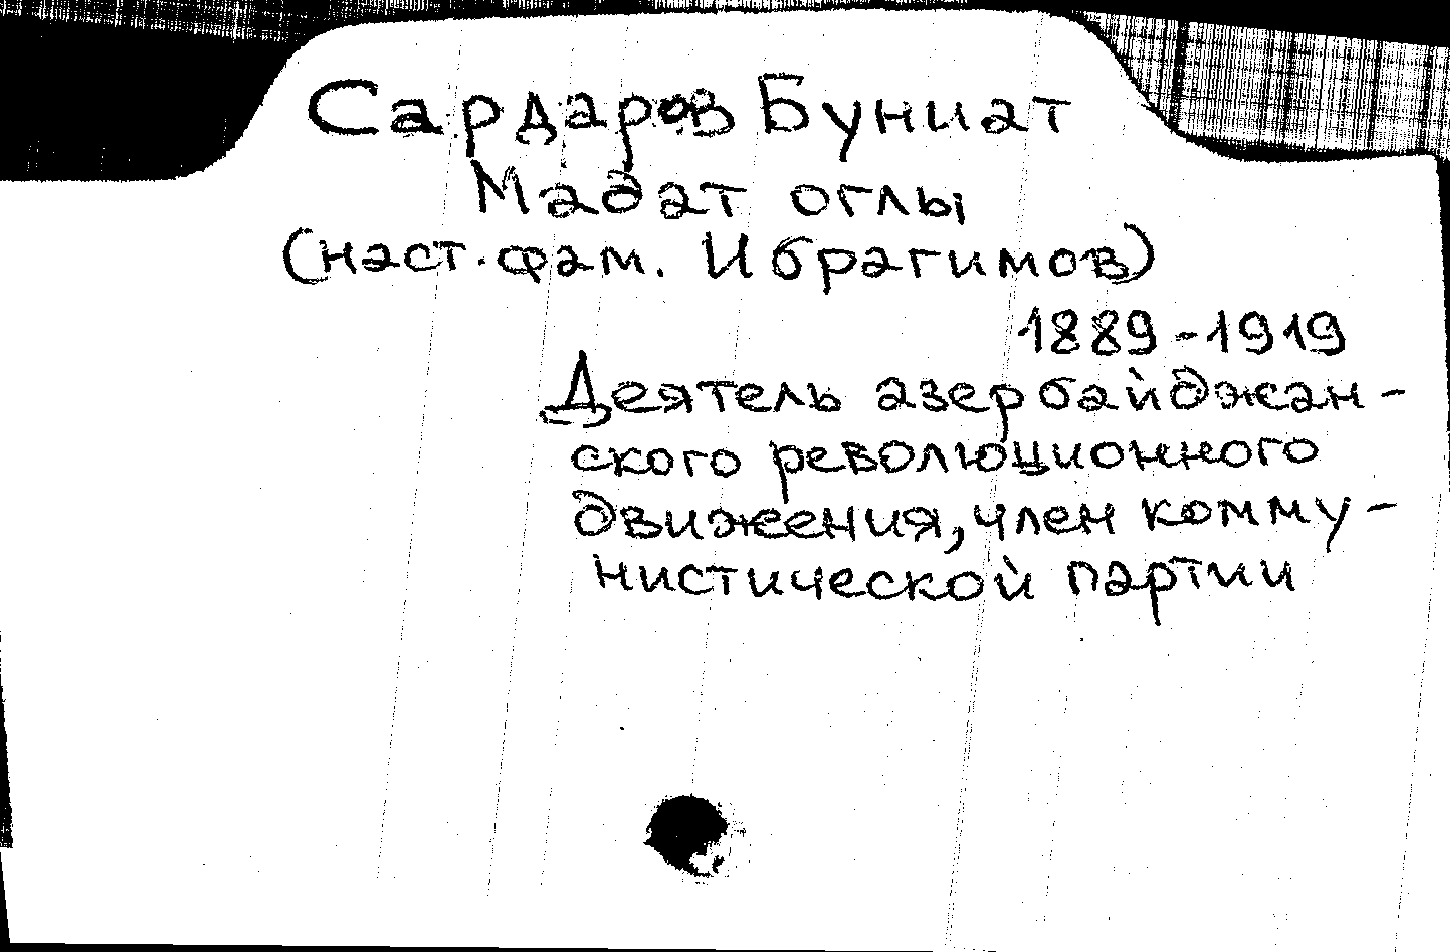 Сардаров Буниат
Мадат оглы
(наст. фам. Ибрагимов)
1889-1919
Деятель азербайджан-
ского революционного
движения, член комму-
нистической партии